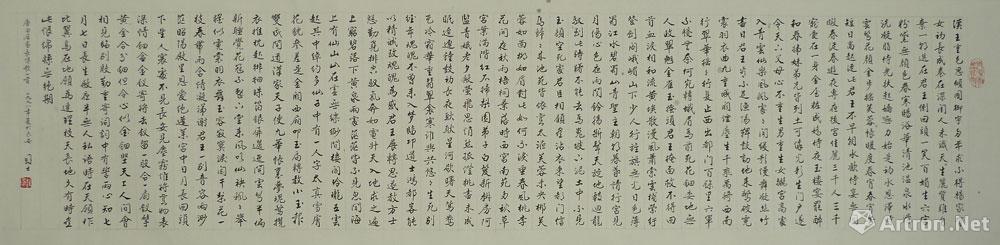 漢王重色思傾國御宇多年求不得楊家有
女初長成養在深閨人未識天生麗質難自
棄一朝選在君王側回頭一笑百媚生六宮
粉黛無顏色春寒賜浴華清池溫泉水滑
洗凝脂侍兒扶起嬌無力始是新承恩澤時
雲鬢花顏金步搖芙蓉帳暖度春宵春宵
苦短日高起從此君王不早朝承歡侍宴無
閒暇春從春遊夜專夜後宮佳麗三千人三千
寵愛在一身金屋妝成嬌侍夜玉樓宴罷醉
和春姊妹弟兄皆列土可憐光彩生門戶遂
令天下父母心不重生男重生女驪宮高處
入青雲仙樂風飄處處聞緩歌慢舞凝絲竹
盡日君王看不足漁陽鼙鼓動地來驚破霓
裳羽衣曲九重城闕煙塵生千乘萬騎西南
行翠華搖搖行復止西出都門百餘里六軍
不發無奈何宛轉蛾眉馬前死花鈿委地無
人收翠翹金雀玉搔頭君王掩面救不得回
看血淚相和流黃埃散漫風蕭索雲棧縈紆
登劍閣峨嵋山下少人行旌旗無光日色薄
蜀江水碧蜀山青聖主朝朝暮暮情行宮見
月傷心色夜雨聞鈴腸斷聲天旋地轉迴龍
馭到此躊躇不能去馬嵬坡下泥土中不見
玉顏空死處君臣相顧盡沾衣東望都門信
馬歸歸來池苑皆依舊太液芙蓉未央柳芙
蓉如面柳如眉對此如何不淚垂春風桃李
花開夜秋雨梧桐葉落時西宮南苑多秋草
宮葉滿階紅不掃梨園弟子白髮新椒房阿
監青娥老夕殿螢飛思悄然孤燈挑盡未成
眠遲遲鐘鼓初長夜耿耿星河欲曙天鴛鴦
瓦冷霜華重翡翠衾寒誰與共悠悠生死別
經年魂魄不曾來入夢臨邛道士鴻都客能
以精誠致魂魄為感君王展轉思遂教方士
殷勤覓排空馭氣奔如電升天入地求之遍
上窮碧落下黃泉兩處茫茫皆不見忽聞海
上有仙山山在虛無縹緲間樓閣玲瓏五雲
起其中綽約多仙子中有一人字太真雪膚
花貌參差是金闕西廂叩玉扃轉教小玉報
雙成聞道漢家天子使九華帳裏夢魂驚攬
衣推枕起徘徊珠箔銀屏迤邐開雲鬢半偏
新睡覺花冠不整下堂來風吹仙袂飄飄舉
猶似霓裳羽衣舞玉容寂寞淚闌干梨花一
枝春帶雨含情凝睇謝君王一別音容兩渺
茫昭陽殿裏恩愛絕蓬萊宮中日月長回頭
下望人寰處不見長安見塵霧唯將舊物表
深情鈿合金釵寄將去釵留一股合一扇釵擘
黃金合分鈿但令心似金鈿堅天上人間會
相見臨別殷勤重寄詞詞中有誓兩心知七
月七日長生殿夜半無人私語時在天願作
比翼鳥在地願為連理枝天長地久有時盡
此恨綿綿無絕期
唐白居易長恨歌一首
Artron.Net